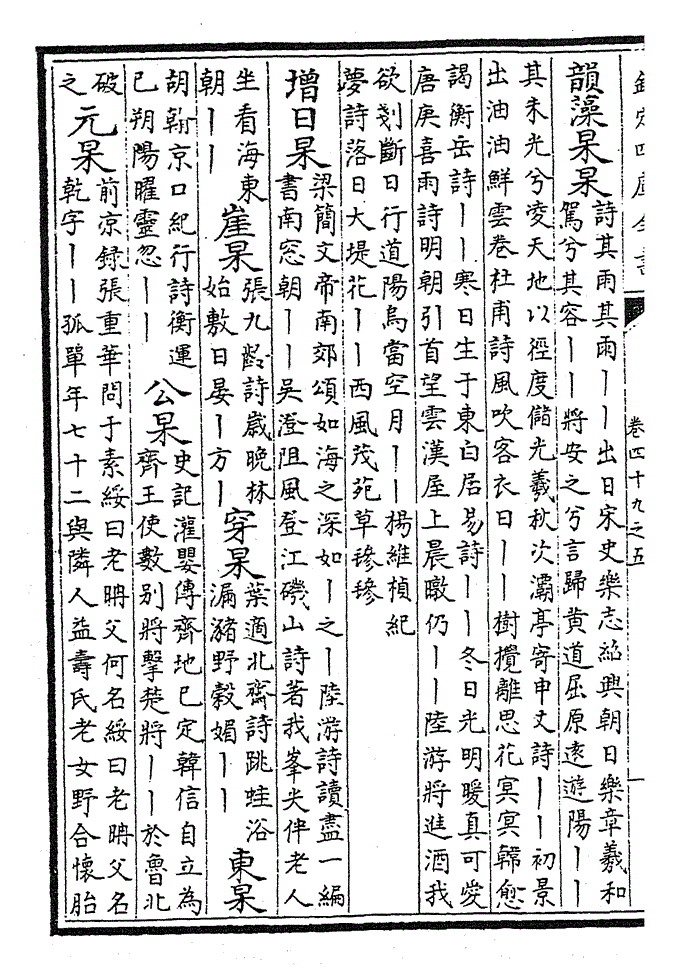 卷四十九之五
一
韻藻杲杲
詩其雨其雨丨丨出日宋史樂志紹興朝日樂章羲和
駕兮其容丨丨將安之兮言歸黄道屈原逺遊陽丨丨
其未光兮凌天地以徑度儲光羲秋次灞亭寄申丈詩丨丨初景
出油油鮮雲卷杜甫詩風吹客衣日丨丨樹攪離思花冥冥韓愈
謁衡岳詩丨丨寒日生于東白居易詩丨丨冬日光明暖真可愛
唐庚喜雨詩明朝引首望雲漢屋上晨暾仍丨丨陸游將進酒我
欲剗斷日行道陽烏當空月丨丨楊維楨紀
夢詩落日大堤花丨丨西風茂苑草毿毿
增日杲
梁簡文帝南郊頌如海之深如丨之丨陸游詩讀盡一編
書南窓朝丨丨吴澄阻風登江磯山詩著我峯尖伴老人
坐看海東
朝丨丨
崖杲
張九齡詩歲晩林
始敷日晏丨方丨
穿杲
葉適北齋詩跳蛙浴
漏瀦野穀媚丨丨
東杲
胡翰京口紀行詩衡運
已朔陽曜靈忽丨丨
公杲
史記灌嬰傳齊地已定韓信自立為
齊王使數别將擊楚將丨丨於魯北
破
之
元杲
前凉録張重華問于素綏曰老耼父何名綏曰老耼父名
乾字丨丨孤單年七十二與隣人益壽氏老女野合懷胎